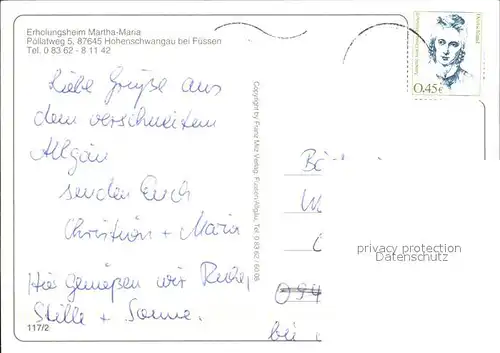 Erholungsheim Martha-Maria
Pöllatweg 5, 87645 Hohenschwangau bei Füssen
Tel. 0 83 62 - 8 11 42
Liebe Grüße aus
dem verschneitem
Allgäu
senden Euch
Christian + Maria
Hier genießen wir Ruhe,
Stille + Sonne.
117/2
Copyright by Franz Milz Verlag, Füssen/Allgäu, Tel. 0 83 62 / 60 08
0.45€
privacy protection
Datenschutz
094
bei